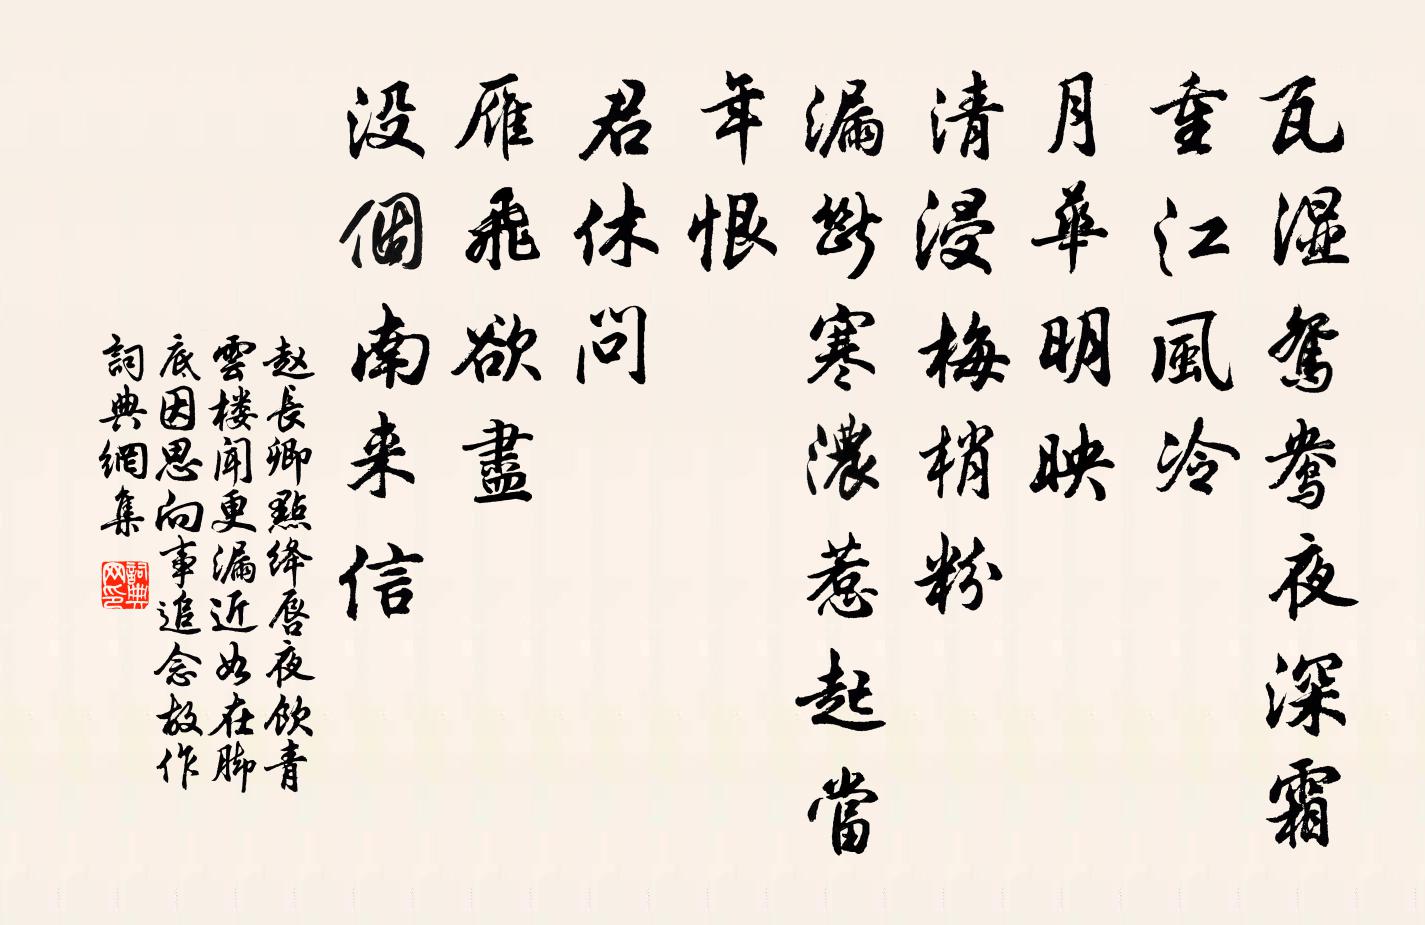 瓦湿鸳鸯夜深霜
重江風冷
月華明映
清浸梅梢粉
漏斷寒濃惹起當
年恨
君休问
雁飛欲盡
没個南来信
赵長卿點绛唇夜饮青
雲楼闻更漏近如在脚
底因思向事追念故作
詞典網集
詞典网印